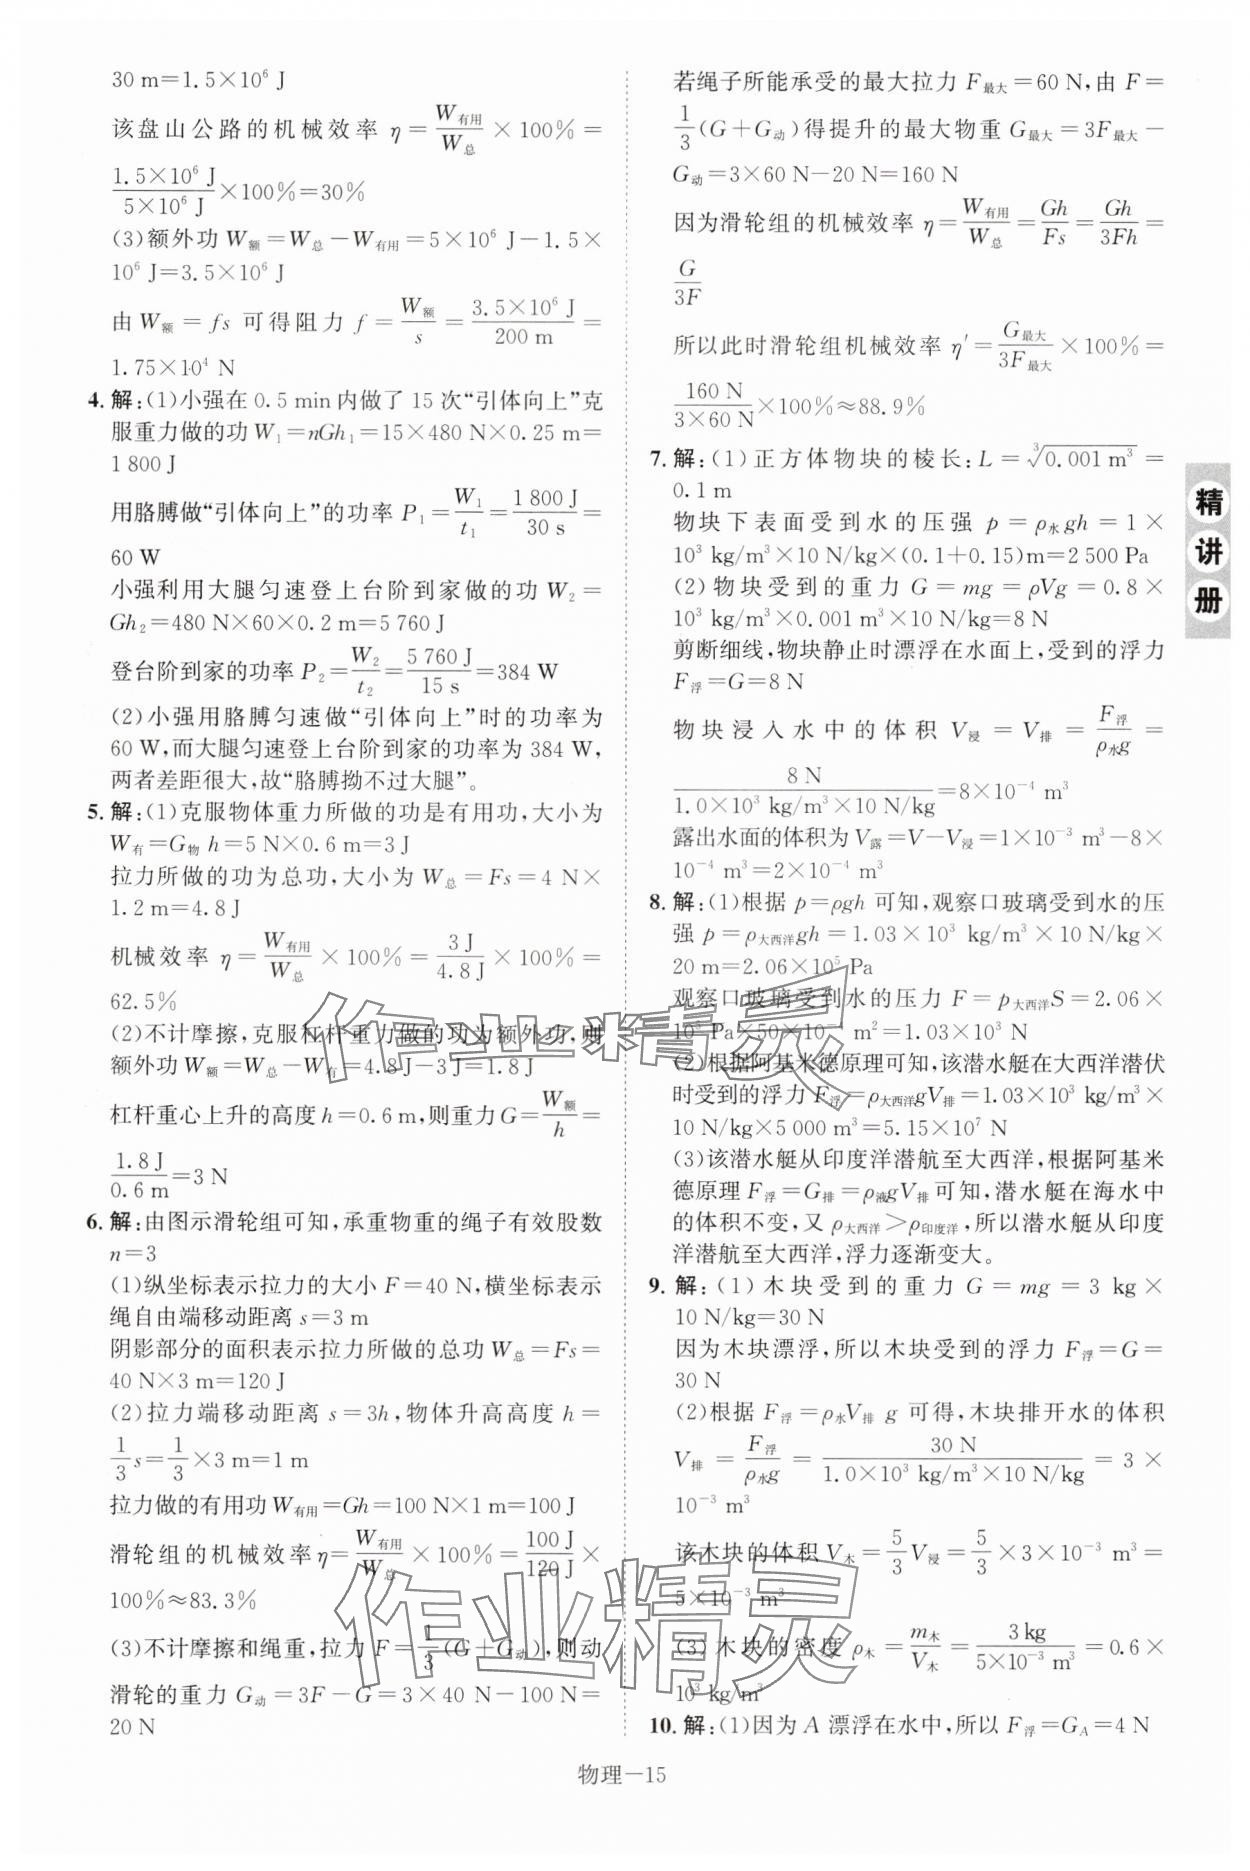 30 m=1.5×10⁶ J
该盘山公路的机械效率 η=W有用/W总×100%=
1.5×10⁶ J/5×10⁶ J×100%=30%
(3)额外功 W额=W总−W有用=5×10⁶ J−1.5×
10⁶ J=3.5×10⁶ J
由 W额=fs 可得阻力 f=W额/s=3.5×10⁶ J/200 m=
1.75×10⁴ N
4. 解:(1)小强在 0.5 min内做了 15 次“引体向上”克
服重力做的功 W₁=nGh₁=15×480 N×0.25 m=
1 800 J
用胳膊做“引体向上”的功率 P₁=W₁/t₁=1 800 J/30 s=
60 W
小强利用大腿匀速登上台阶到家做的功 W₂=
Gh₂=480 N×60×0.2 m=5 760 J
登台阶到家的功率 P₂=W₂/t₂=5 760 J/15 s=384 W
(2)小强用胳膊匀速做“引体向上”时的功率为
60 W,而大腿匀速登上台阶到家的功率为 384 W,
两者差距很大,故“胳膊拗不过大腿”。
5. 解:(1)克服物体重力所做的功是有用功,大小为
W有=G物 h=5 N×0.6 m=3 J
拉力所做的功为总功,大小为 W总=Fs=4 N×
1.2 m=4.8 J
机械效率 η=W有用/W总×100%=3 J/4.8 J×100%=
62.5%
(2)不计摩擦,克服杠杆重力做的功为额外功,则
额外功 W额=W总−W有=4.8 J−3 J=1.8 J
杠杆重心上升的高度 h=0.6 m,则重力 G=W额/h=
1.8 J/0.6 m=3 N
6. 解:由图示滑轮组可知,承重物重的绳子有效股数
n=3
(1)纵坐标表示拉力的大小 F=40 N,横坐标表示
绳自由端移动距离 s=3 m
阴影部分的面积表示拉力所做的总功 W总=Fs=
40 N×3 m=120 J
(2)拉力端移动距离 s=3h,物体升高高度 h=
1/3 s=1/3×3 m=1 m
拉力做的有用功 W有用=Gh=100 N×1 m=100 J
滑轮组的机械效率 η=W有用/W总×100%=100 J/120 J×
100%≈83.3%
(3)不计摩擦和绳重,拉力 F=1/3(G+G动),则动
滑轮的重力 G动=3F−G=3×40 N−100 N=
20 N
若绳子所能承受的最大拉力 F最大=60 N,由 F=
1/3(G+G动)得提升的最大物重 G最大=3F最大−
G动=3×60 N−20 N=160 N
因为滑轮组的机械效率 η=W有用/W总=Gh/Fs=Gh/3Fh=
G/3F
所以此时滑轮组机械效率 η′=G最大/3F最大×100%=
160 N/3×60 N×100%≈88.9%
7. 解:(1)正方体物块的棱长:L=∛0.001 m³=
0.1 m
物块下表面受到水的压强 p=ρ水gh=1×
10³ kg/m³×10 N/kg×(0.1+0.15)m=2 500 Pa
(2)物块受到的重力 G=mg=ρVg=0.8×
10³ kg/m³×0.001 m³×10 N/kg=8 N
剪断细线,物块静止时漂浮在水面上,受到的浮力
F浮=G=8 N
物块浸入水中的体积 V浸=V排=F浮/ρ水g=
8 N/1.0×10³ kg/m³×10 N/kg=8×10⁻⁴ m³
露出水面的体积为 V露=V−V浸=1×10⁻³ m³−8×
10⁻⁴ m³=2×10⁻⁴ m³
8. 解:(1)根据 p=ρgh 可知,观察口玻璃受到水的压
强 p=ρ大西洋gh=1.03×10³ kg/m³×10 N/kg×
20 m=2.06×10⁵ Pa
观察口玻璃受到水的压力 F=p大西洋S=2.06×
10⁵ Pa×50×10⁻⁴ m²=1.03×10³ N
(2)根据阿基米德原理可知,该潜水艇在大西洋潜伏
时受到的浮力 F浮=ρ大西洋gV排=1.03×10³ kg/m³×
10 N/kg×5 000 m³=5.15×10⁷ N
(3)该潜水艇从印度洋潜航至大西洋,根据阿基米
德原理 F浮=G排=ρ液gV排可知,潜水艇在海水中
的体积不变,又 ρ大西洋>ρ印度洋,所以潜水艇从印度
洋潜航至大西洋,浮力逐渐变大。
9. 解:(1)木块受到的重力 G=mg=3 kg×
10 N/kg=30 N
因为木块漂浮,所以木块受到的浮力 F浮=G=
30 N
(2)根据 F浮=ρ水V排 g 可得,木块排开水的体积
V排=F浮/ρ水g=30 N/1.0×10³ kg/m³×10 N/kg=3×
10⁻³ m³
该木块的体积 V木=5/3 V浸=5/3×3×10⁻³ m³=
5×10⁻³ m³
(3)木块的密度 ρ木=m木/V木=3 kg/5×10⁻³ m³=0.6×
10³ kg/m³
10. 解:(1)因为 A 漂浮在水中,所以 F浮=G_A=4 N
精讲册
作业精灵
作业精灵
物理—15